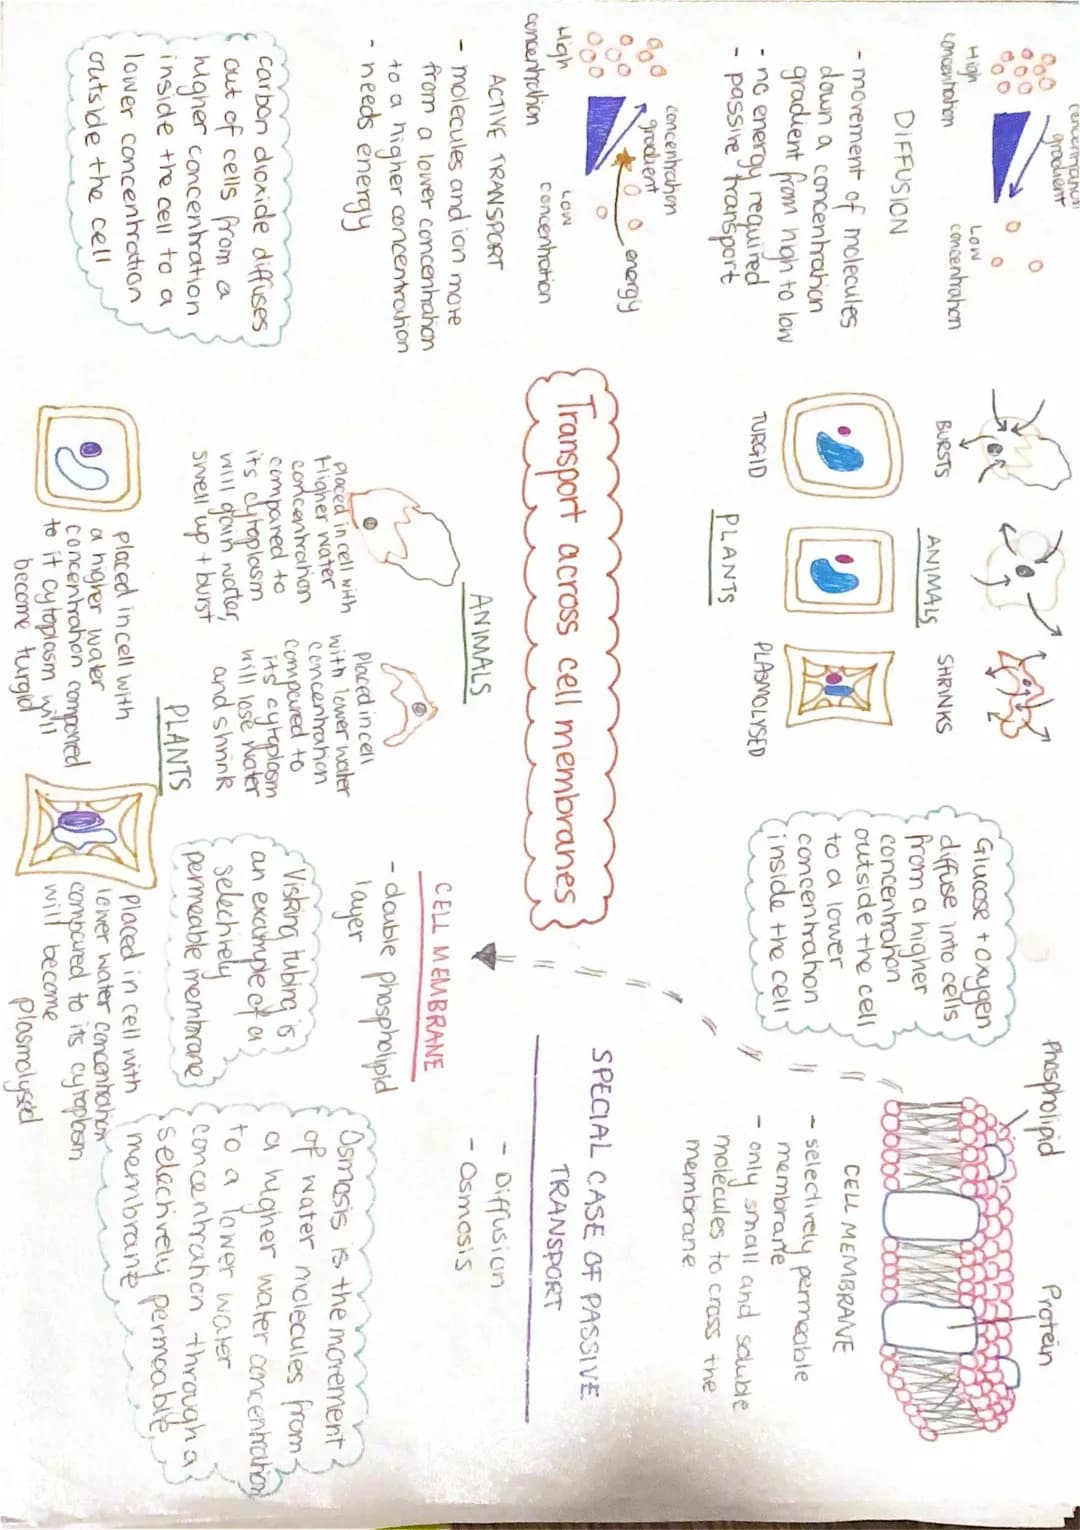 concentration
gradient
High
concentration
Low
concentration
DIFFUSION
- movement of molecules
down a concentration
gradient from high to low
- no energy required
- passive transport
concentration
gradient
energy
High
concentration
Low
concentration
ACTIVE TRANSPORT
- molecules and ion move
from a lower concentration
to a higher concentration
- needs energy
carbon dioxide diffuses
out of cells from a
higher concentration
inside the cell to a
lower concentration
outside the cell
BURSTS
ANIMALS
SHRINKS
TURGID
PLANTS
PLASMOLYSED
Transport across cell membranes
ANIMALS
Placed in cell with
Higher water
concentration
compared to
its cytoplasm
will gain water,
swell up + burst
Placed in cell
with lower water
concentration
compared to
its cytoplasm
will lose water
and shrink
PLANTS
Placed in cell with
a higher water
concentration compared
to it cytoplasm will
become turgid
Placed in cell with
lower water concentration
compared to its cytoplasm
will become
Plasmolysed
Glucose + oxygen
diffuse into cells
from a higher
concentration
outside the cell
to a lower
concentration
inside the cell
Phospholipid
Protein
CELL MEMBRANE
- selectively permeable
membrane
- only small and soluble
molecules to cross the
membrane
SPECIAL CASE OF PASSIVE
TRANSPORT
- Diffusion
- Osmosis
CELL MEMBRANE
- double phospholipid
layer
Visking tubing is
an example of a
selectively
permeable membrane
Osmosis is the movement
of water molecules from
a higher water concentration
to a lower water
concentration through a
selectively permeable
membrane